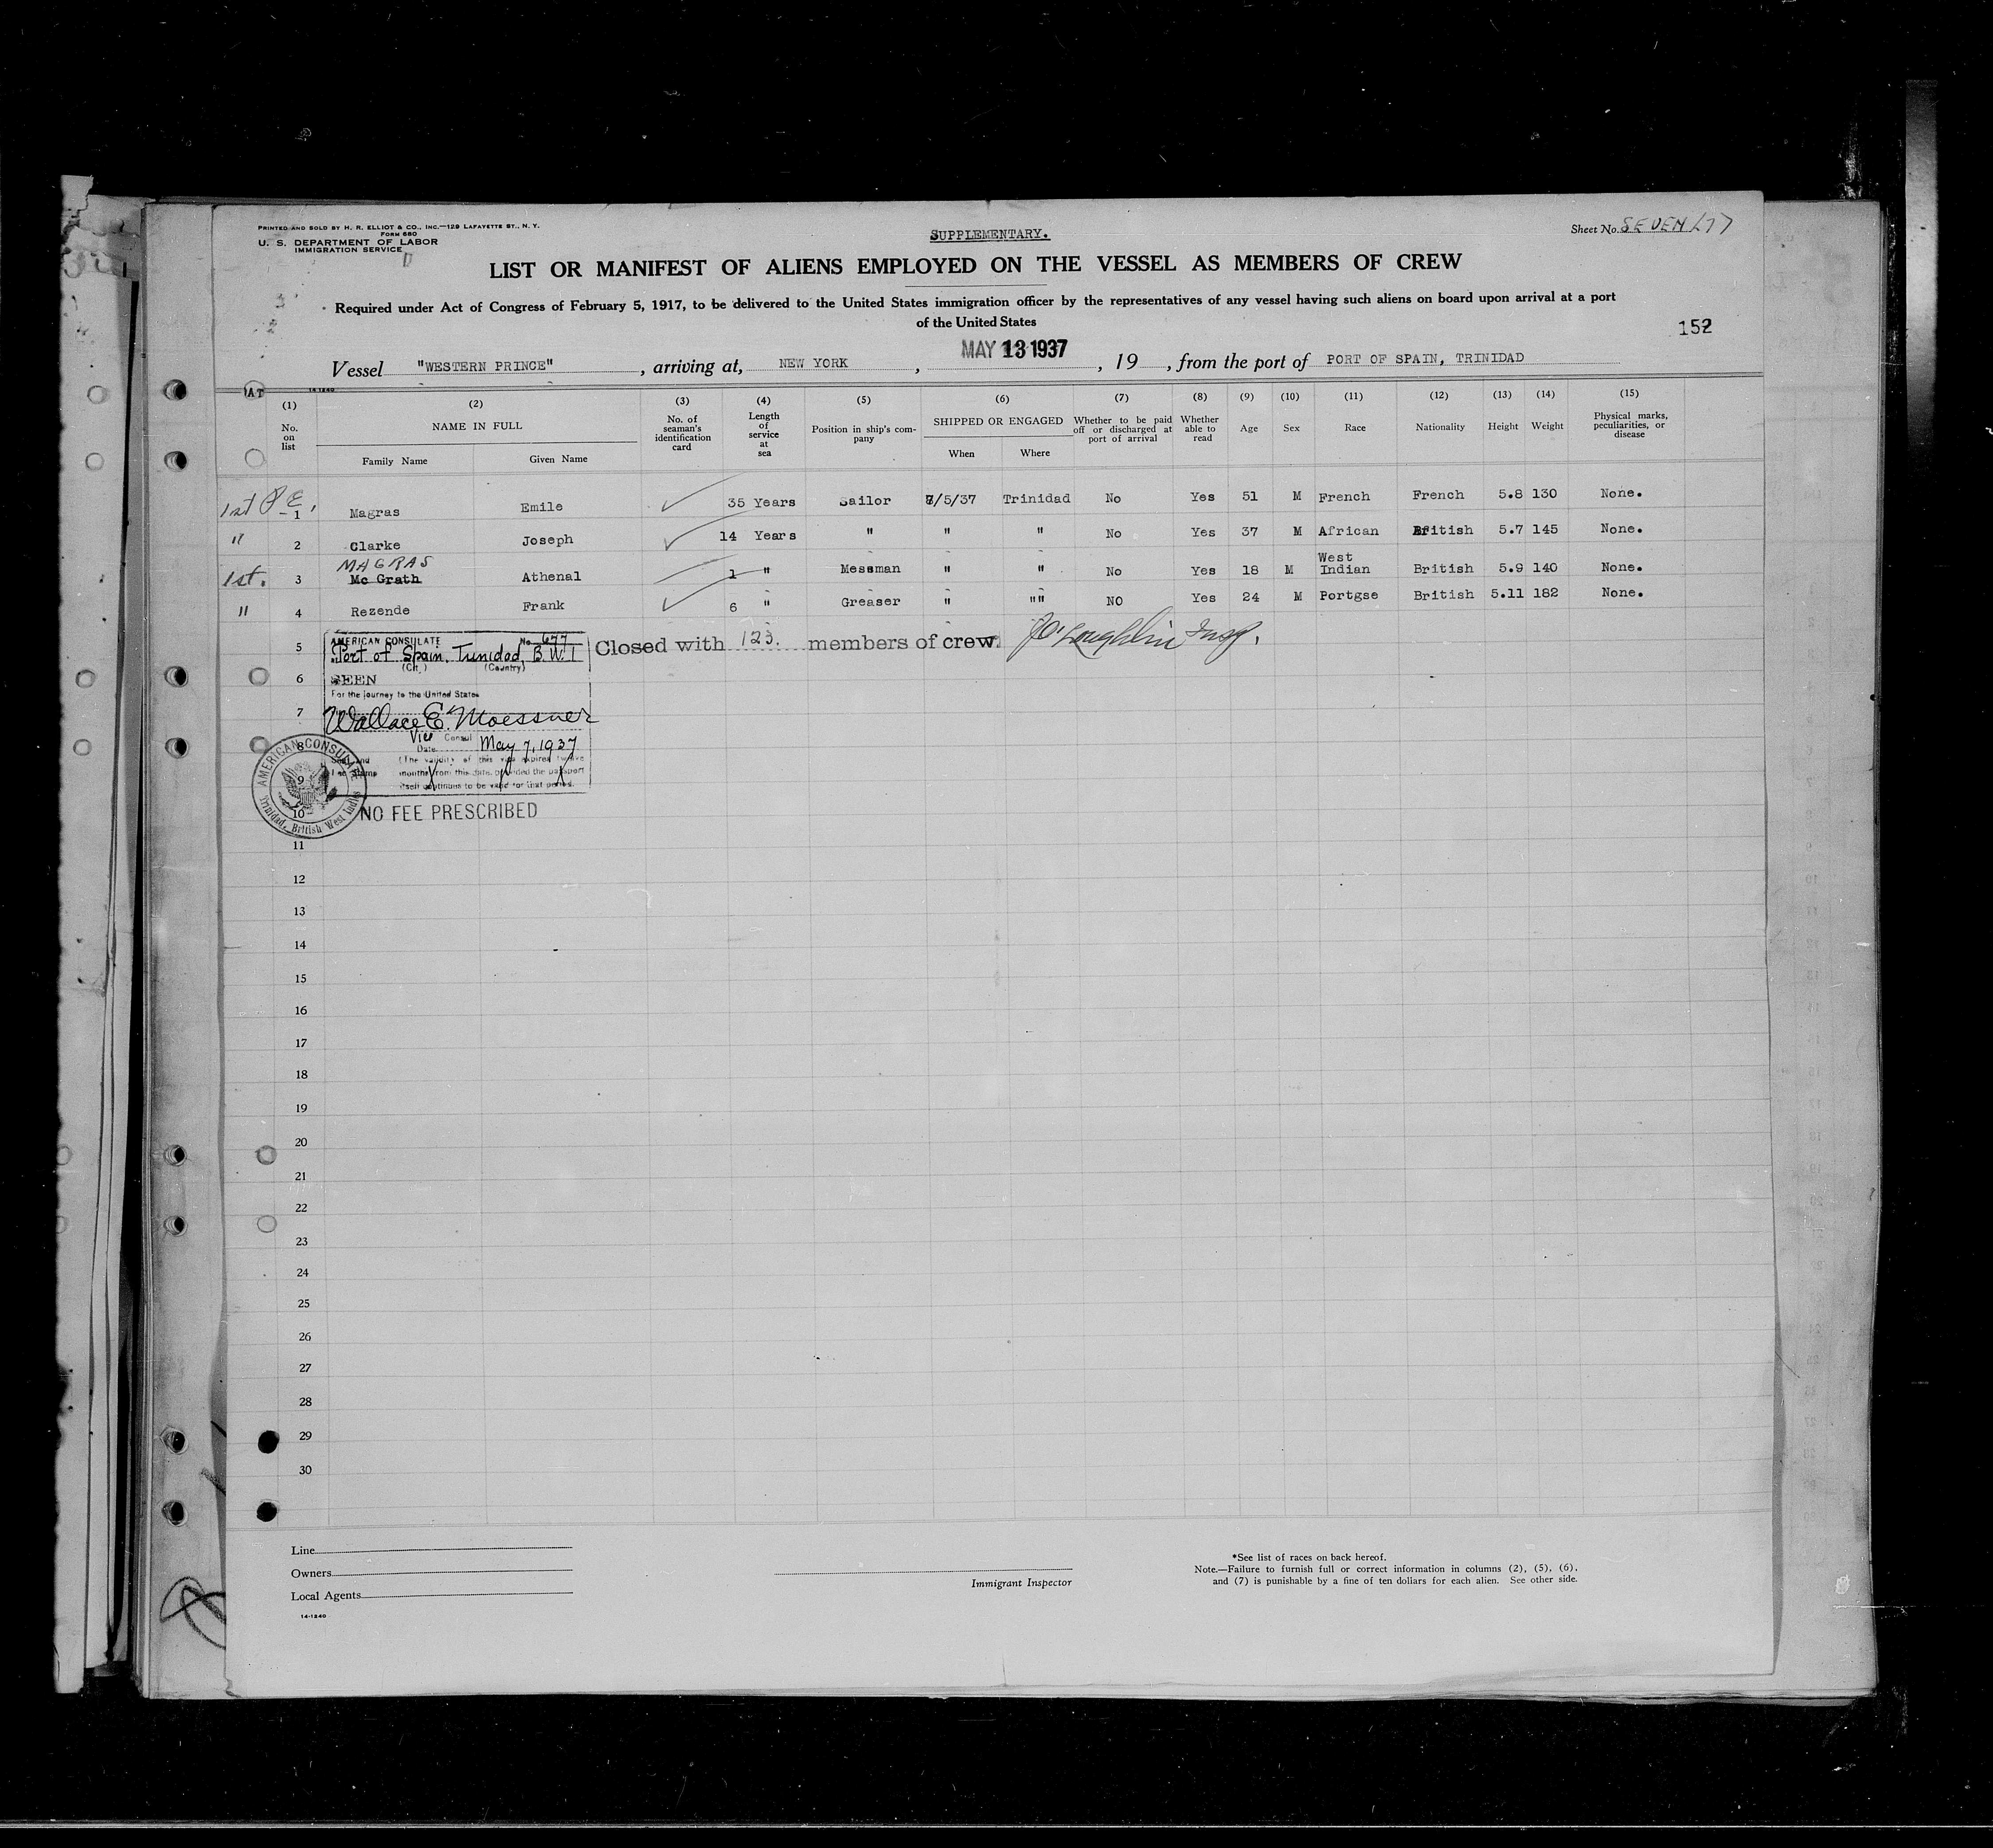 PRINTED AND SOLD BY H. R. ELLIOT & CO., INC.—129 LAFAYETTE ST., N. Y.
FORM 680
U. S. DEPARTMENT OF LABOR
IMMIGRATION SERVICE
SUPPLEMENTARY.
Sheet No. SEVEN /7)
LIST OR MANIFEST OF ALIENS EMPLOYED ON THE VESSEL AS MEMBERS OF CREW
Required under Act of Congress of February 5, 1917, to be delivered to the United States immigration officer by the representatives of any vessel having such aliens on board upon arrival at a port
of the United States
152
Vessel "WESTERN PRINCE", arriving at, NEW YORK, MAY 13 1937, 19 , from the port of PORT OF SPAIN, TRINIDAD
14-1240
(1) No. on list (2) NAME IN FULL Family Name Given Name (3) No. of seaman's identification card (4) Length of service at sea (5) Position in ship's company (6) SHIPPED OR ENGAGED When Where (7) Whether to be paid off or discharged at port of arrival (8) Whether able to read (9) Age (10) Sex (11) Race (12) Nationality (13) Height (14) Weight (15) Physical marks, peculiarities, or disease
1st P.E. 1 Magras Emile 35 Years Sailor 7/5/37 Trinidad No Yes 51 M French French 5.8 130 None.
" 2 Clarke Joseph 14 Years " " " No Yes 37 M African British 5.7 145 None.
MAGRAS
1st. 3 Mc Grath Athenal 1 " Messman " " No Yes 18 M West Indian British 5.9 140 None.
" 4 Rezende Frank 6 " Greaser " "" NO Yes 24 M Portgse British 5.11 182 None.
5 AMERICAN CONSULATE No. 677
Port of Spain, Trinidad, B.W.I
(City) (Country)
Closed with 123. members of crew. J O'Loughlin Insp.
6 SEEN
For the journey to the United States
7 Wallace E. Moessner
Vice Consul
8 Date May 7, 1937
Seal and Fee Stamp (The validity of this visa expires twelve
months from this date, provided the passport
itself continues to be valid for that period.
9
10
AMERICAN CONSULATE
Trinidad, British West Indies
NO FEE PRESCRIBED
11
12
13
14
15
16
17
18
19
20
21
22
23
24
25
26
27
28
29
30
Line
Owners
Local Agents
14-1240
Immigrant Inspector
*See list of races on back hereof.
Note.—Failure to furnish full or correct information in columns (2), (5), (6),
and (7) is punishable by a fine of ten dollars for each alien. See other side.